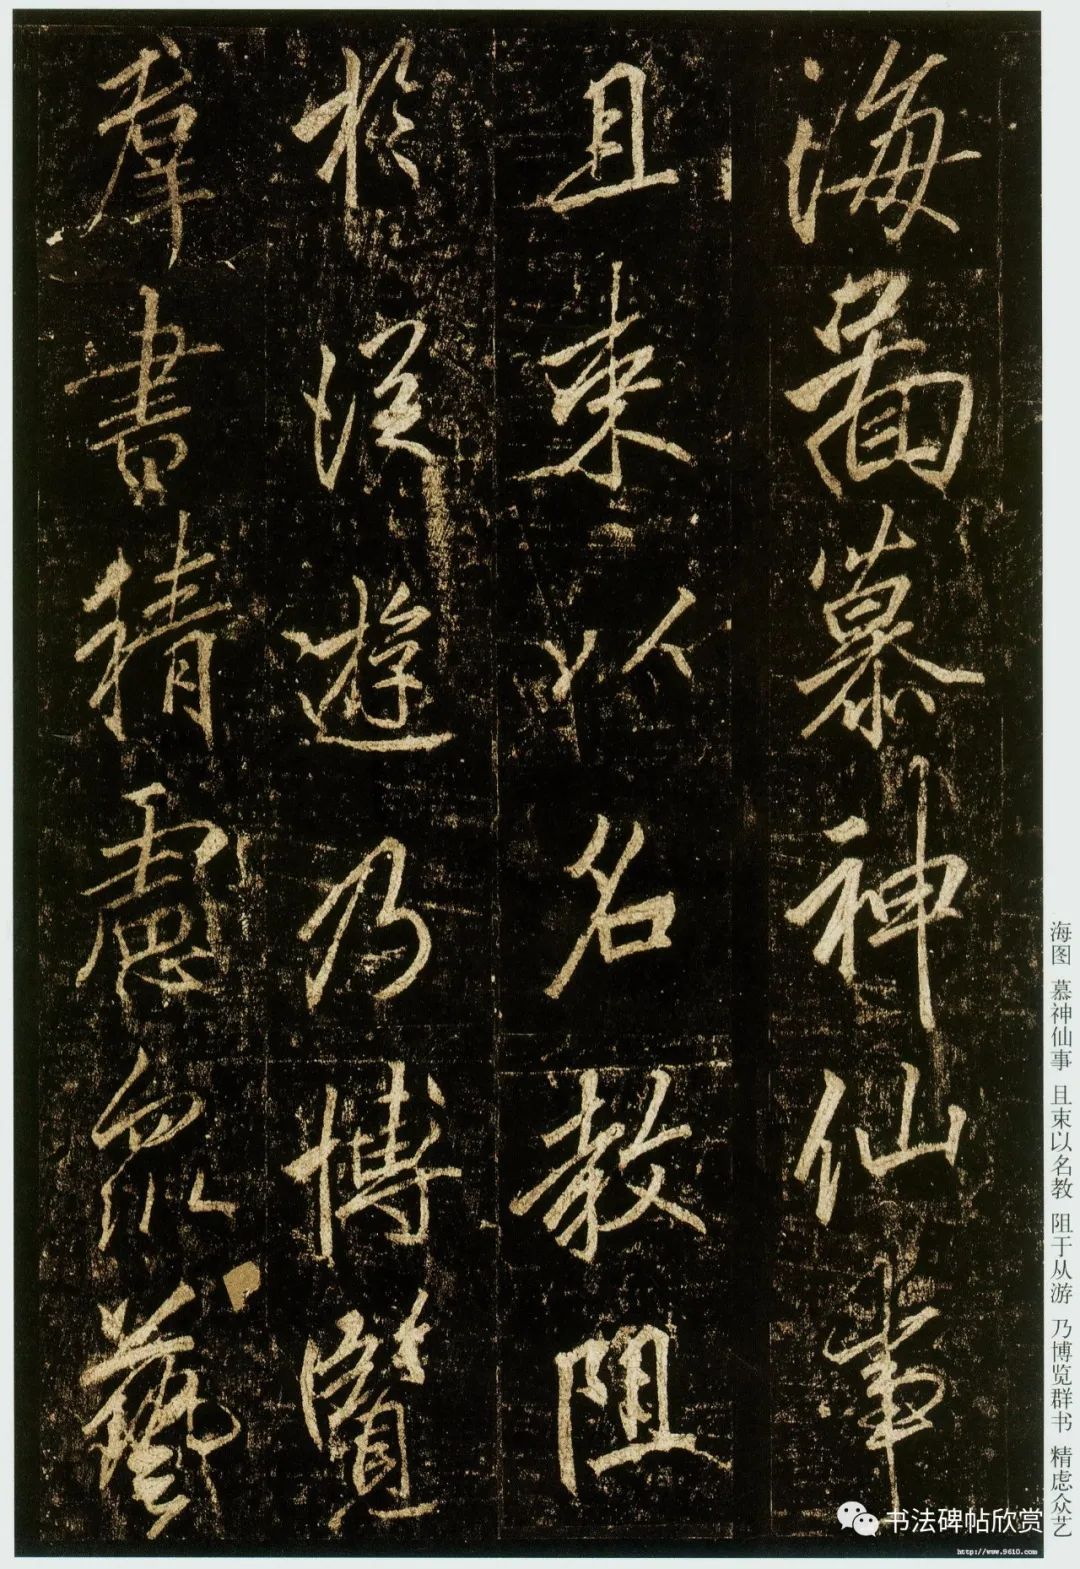 海圖慕神仙事
且束以名教阻
於從遊乃博覽
群書精慮眾藝
海图 慕神仙事 且束以名教 阻于从游 乃博览群书 精虑众艺
书法碑帖欣赏
http://www.9610.com